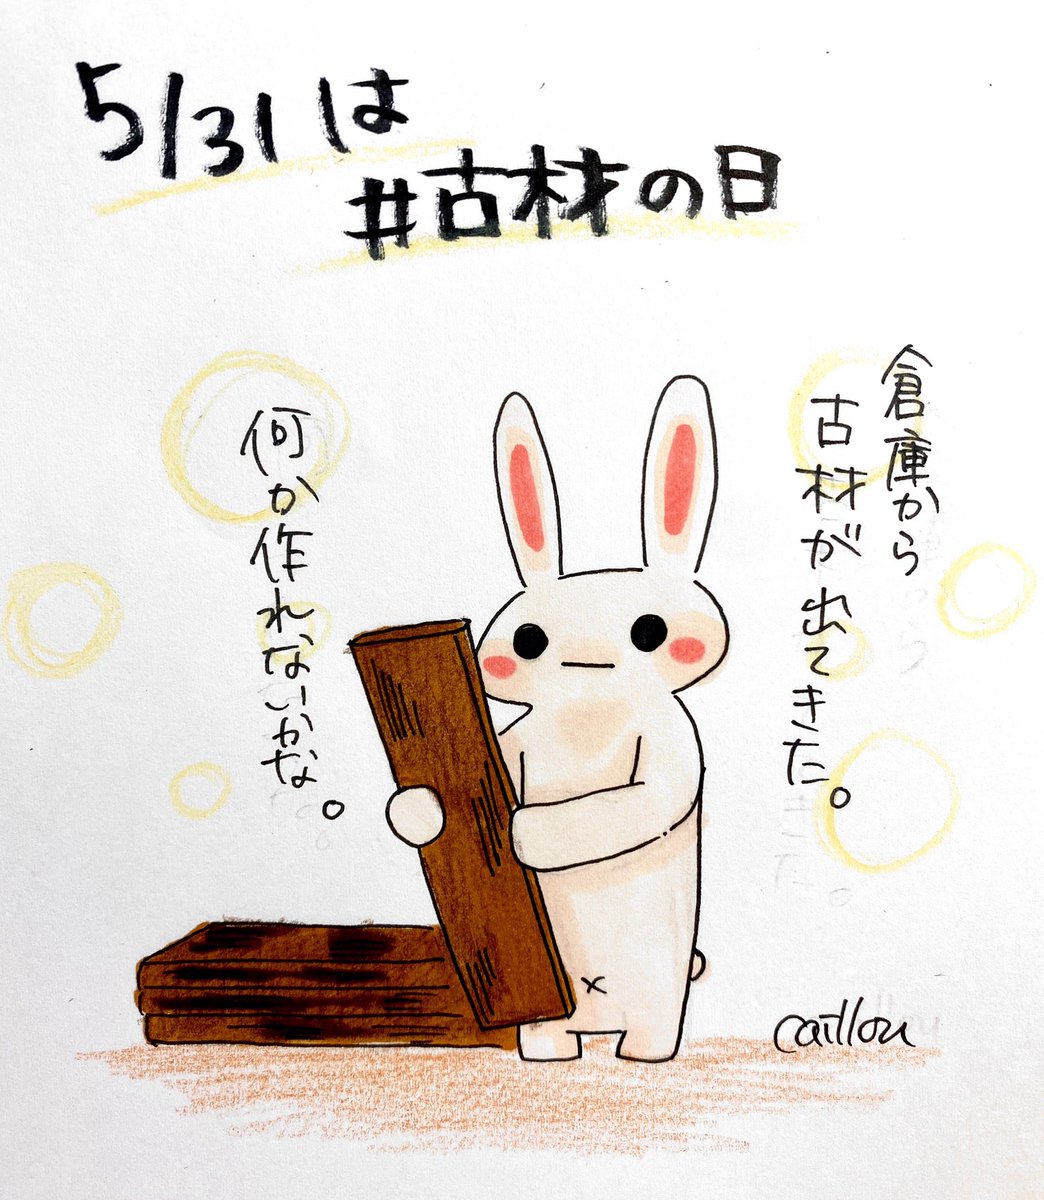 5/31は
#古材の日
倉庫から
古材が出てきた。
何か作れないかな。
caillou